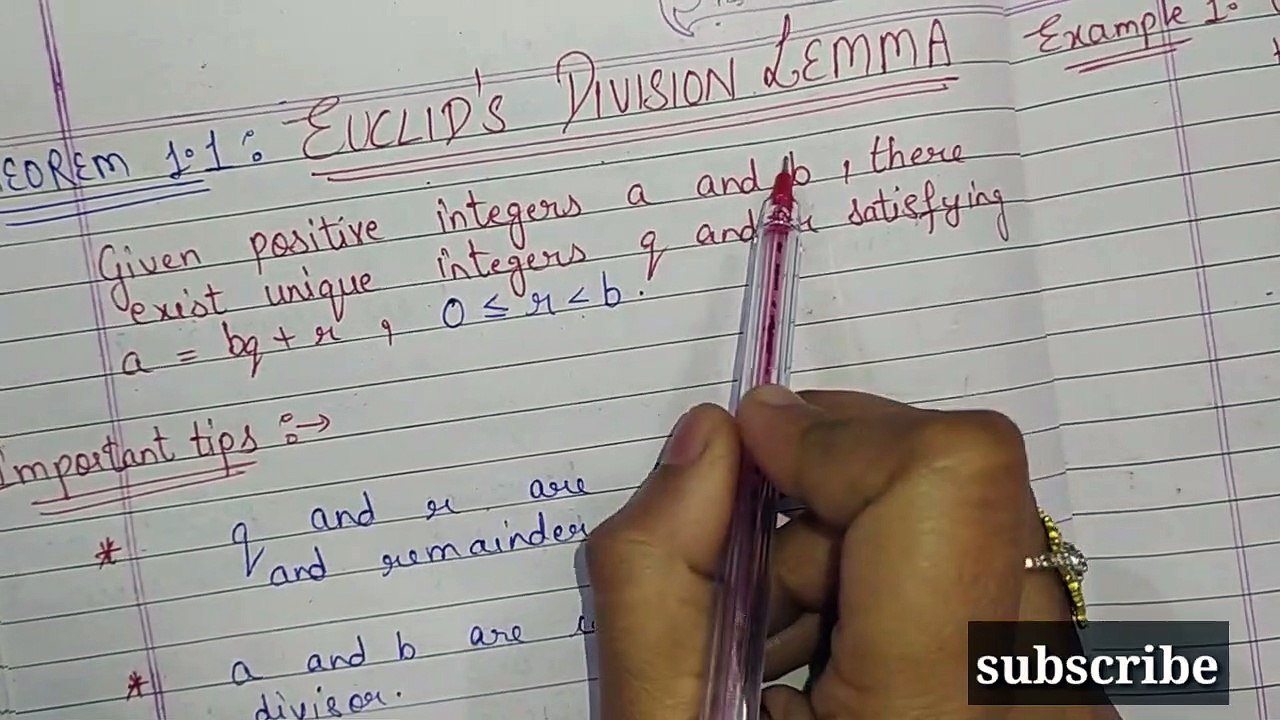 EOREM 1.1: EUCLID'S DIVISION LEMMA
Example 1.
Given positive integers a and b, there
exist unique integers q and r satisfying
a = bq + r, 0 ≤ r < b.
Important tips :→
* q and r are
and remainder
* a and b are
divisor.
subscribe